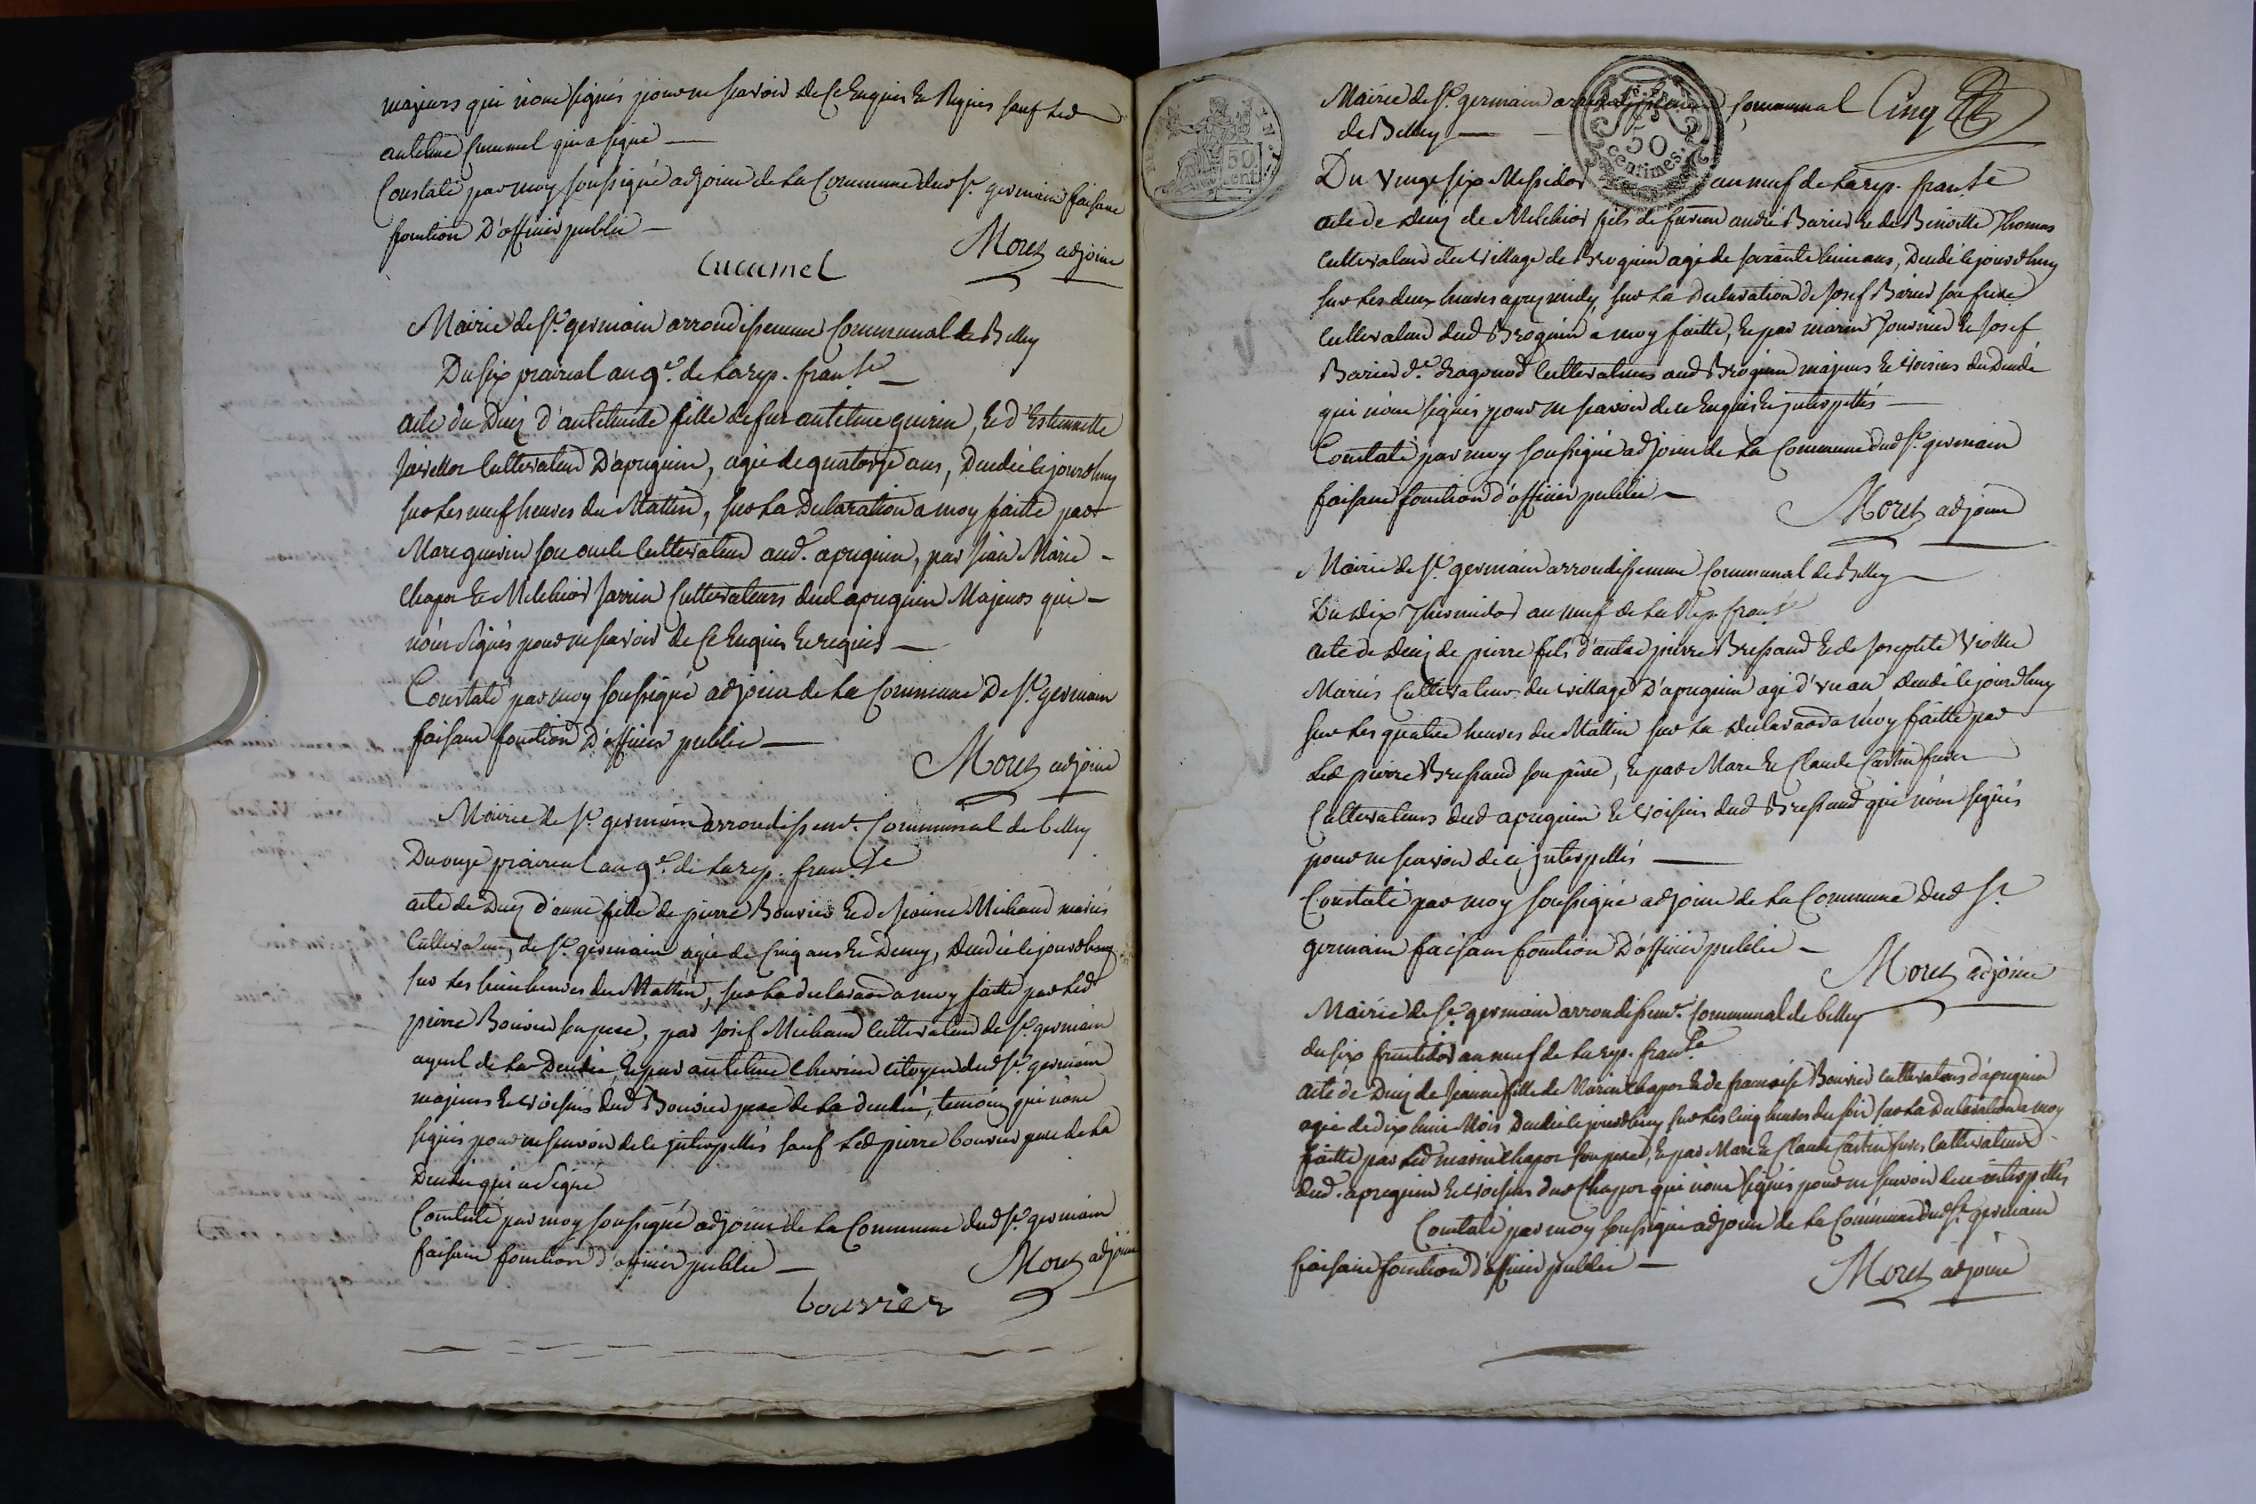 majeurs qui n'ont signés pour ne scavoir de ce Enquis Et Requis sauf led
antelme Cucumel qui a signé
Constaté par moy soussigné adjoint de la Commune dud St germain faisant
fonction D'officier public
Cucumel
Moret adjoint
Mairie de St germain arrondissement Communal de Belley
Du six prairial an 9e de la rep. franse
acte de Deuz d'antelmette fille de fut antelme guerin, Et d'Estiennette
cultivateur D'apregnin, agée de quatorze ans, Deudée le jourdhuy
sur les neuf heures du Mattin, sur la Declaration a moy faitte par
Marc guerin son oncle Cultivateur aud. apregnin, par jean Marie
Chapot Et Melchior Jarrin Cultivateurs dud apregnin Majeurs qui
n'ont signés pour ne scavoir de Ce Enquis Et requis
Constaté par moy soussigné adjoint de la Commune De St germain
faisant fonction D'officier public
Moret adjoint
Mairie de St germain arrondissemt. Communal de belley
Du onze prairial an 9e de la rep. franse
acte de Deuz d'anne fille de pierre Bouvier Et de Jeanne Michaud mariés
Cultivateurs de St germain agée de Cinq ans Et Demy, Deudée le jourdhuy
sur les huit heures du Mattin, sur la declaraon a moy faitte par led
pierre Bouvier son pere, par Josef Michaud Cultivateur de St germain
ayeul de la Deudée, Et par antelme Chevrier citoyen dud St germain
majeurs Et voisins dud Bouvier pere de la deudée, temoins qui n'ont
signés pour ne scavoir de ce interpellés sauf led pierre bouvier pere de la
Deudée qui a signé
Constaté par moy soussigné adjoint de la Commune dud St germain
faisant fonction d'officier public
Moret adjoint
bouvrier
Mairie de St germain arrondissement Communal Cinq
de Belley
50 centimes
Du vingt six Messidor an neuf de la rep. franse
acte de Deuz de Melchior fils de furent andré Barier Et de Benoitte Thomas
Cultivateur du village de Brognin agé de soixante huit ans, Deudé le jourdhuy
sur les deux heures apres midy sur la Declaration de Josef Barier son frere
Cultivateur dud Brognin a moy faitte, Et par marin Journet Et Josef
Barier dt dragonod Cultivateurs aud Brognin majeurs Et voisins du Deudé
qui n'ont signés pour ne scavoir de ce Enquis Et interpellés
Constaté par moy soussigné adjoint de la Commune dud St germain
faisant fonction d'officier public
Moret adjoint
Mairie de St germain arrondissement Communal de Belley
Du dix Thermidor an neuf de la Rep. franse
acte de Deuz de pierre fils d'autre pierre Bressand Et de Josephte Viollet
Mariés Cultivateurs du village D'apregnin agé d'un an Deudé le jourdhuy
sur les quatre heures du Mattin sur la declaraon a moy faitte par
Led pierre Bressand son père, Et par Marc Et Claude Carlin freres
Cultivateurs dud apregnin Et voisins dud Bressand qui n'ont signés
pour ne scavoir de ce interpellés
Constaté par moy soussigné adjoint de la Commune Dud St
germain faisant fonction D'officier public
Moret adjoint
Mairie de St germain arrondissemt. Communal de belley
du six fructidor an neuf de la rep. franse
Acte de Deuz de Jeanne fille de Marin Chapot Et de francoise Bouvier Cultivateurs d'apregnin
agée de dix huit Mois Deudée le jourdhuy sur les cinq heures du soir sur la Declaration a moy
faitte par Led marin Chapot son pere, Et par Marc Et Claude Carlin freres Cultivateurs
dud. apregnin Et voisins dud Chapot qui n'ont signés pour ne scavoir de ce interpellés
Constaté par moy soussigné adjoint de la Commune dud St germain
faisant fonction d'officier public
Moret adjoint